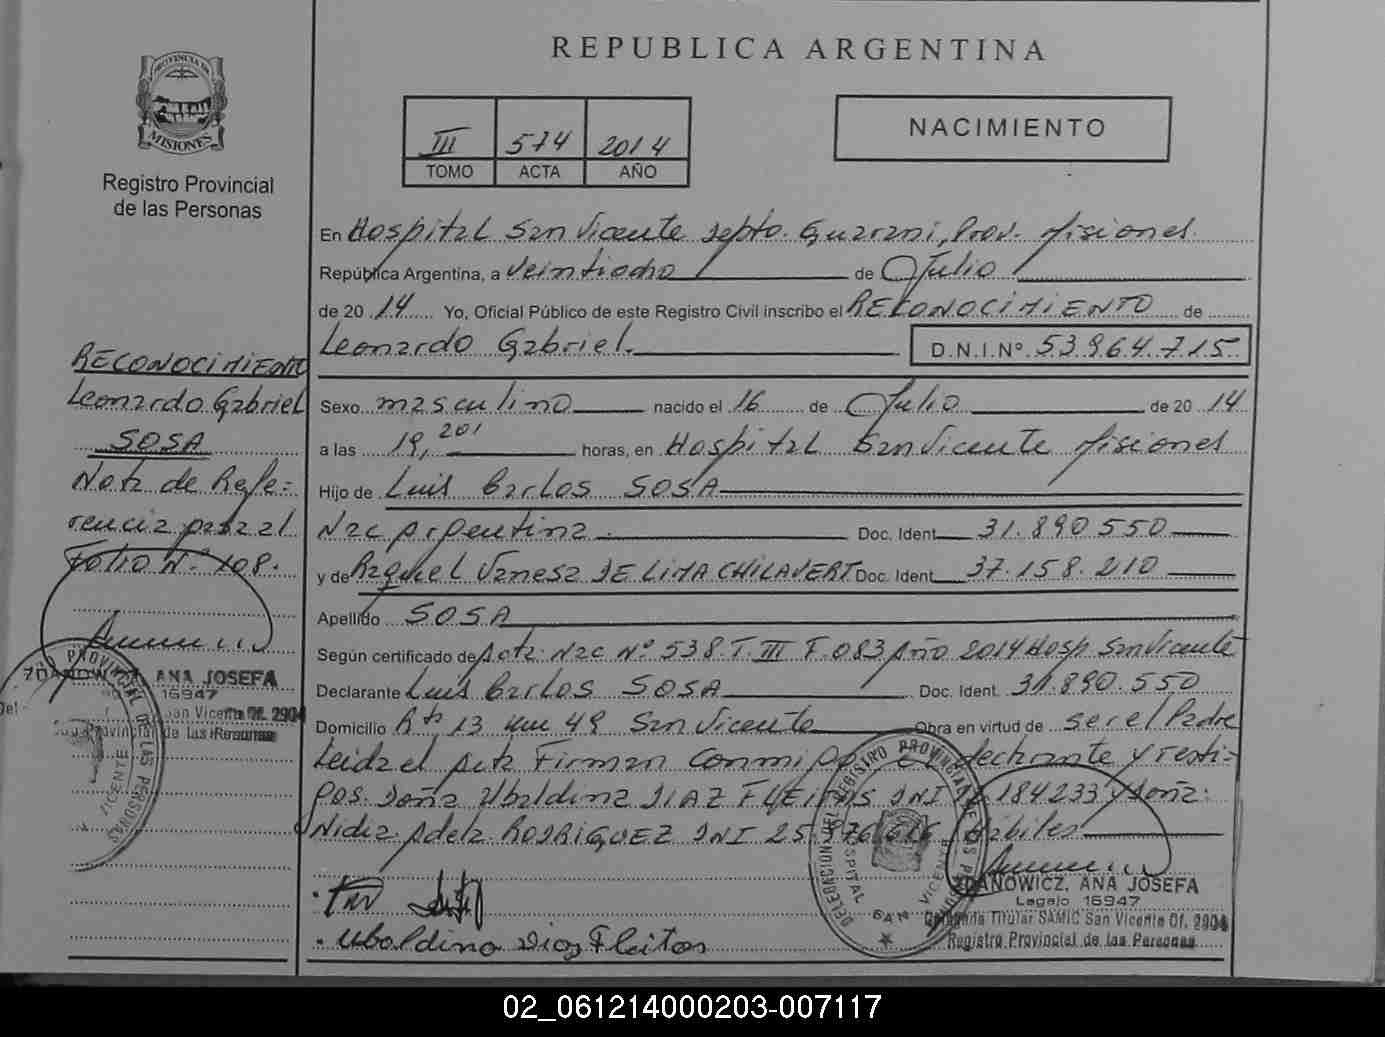 REPUBLICA ARGENTINA
PROVINCIA DE
MISIONES
Registro Provincial
de las Personas
III 574 2014
TOMO ACTA AÑO
NACIMIENTO
En Hospital San Vicente Depto. Guarani, Prov. Misiones
República Argentina, a veintiocho de Julio
de 20 14 Yo, Oficial Público de este Registro Civil inscribo el RECONOCIMIENTO de
Leonardo Gabriel. D.N.I.Nº 53.964.715
Sexo masculino nacido el 16 de Julio de 20 14
a las 19,20 horas, en Hospital San Vicente Misiones
Hijo de Luis Carlos SOSA
Nac Argentina. Doc. Ident 31.890.550
y de Raquel Vanesa DE LIMA CHILAVERT Doc. Ident 37.158.210
Apellido SOSA
Según certificado de Acta Nac Nº 538 T. III F. 083 Año 2014 Hosp San Vicente
Declarante Luis Carlos SOSA Doc. Ident. 31.890.550
Domicilio Rta 13 km 49 San Vicente Obra en virtud de ser el Padre
Leida el Acta Firman Conmigo el declarante y testi-
gos. Doña Ubaldina DIAZ FLEITAS DNI 184233 y doña:
Nidia Adela RODRIGUEZ DNI Habiles
Ubaldina Diaz Fleitas
ZDANOWICZ, ANA JOSEFA
Legajo 16947
Delegada Titular SAMIC San Vicente Of. 2904
Registro Provincial de las Personas
DELEGACION DEL REGISTRO PROVINCIAL DE LAS PERSONAS
HOSPITAL SAN VICENTE
RECONOCIMIENTO
Leonardo Gabriel
SOSA
Nota de Refe-
rencia pasa al
Folio Nº 108.
ZDANOWICZ ANA JOSEFA
16947
San Vicente Of. 2904
Provincial de las Personas
PROVINCIAL DE LAS PERSONAS
VICENTE
02_061214000203-007117